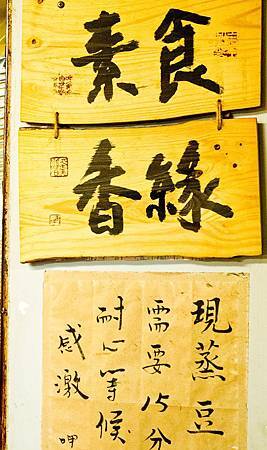 素食
香緣
現蒸豆
需要15分
耐心等候
感激 呷